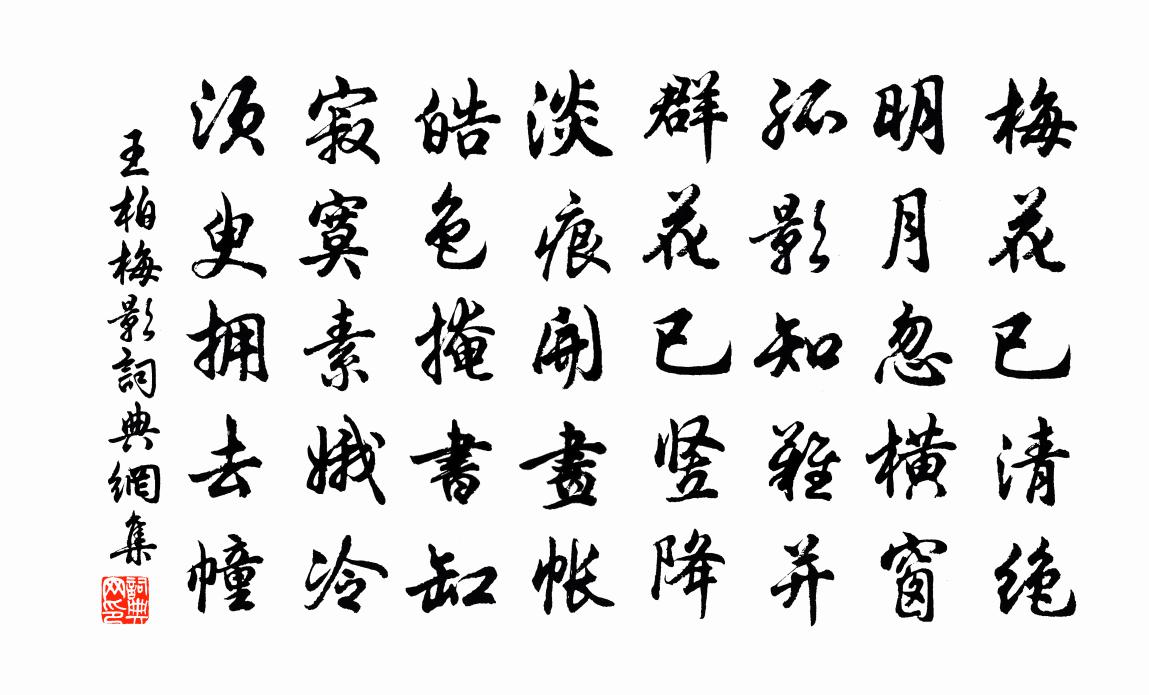 梅花已清绝
明月忽横窗
孤影知難并
群花已竖降
淡痕開畫帐
皓色掩書缸
寂寞素娥冷
须臾拥去幢
王柏梅影詞典網集
詞典
网印